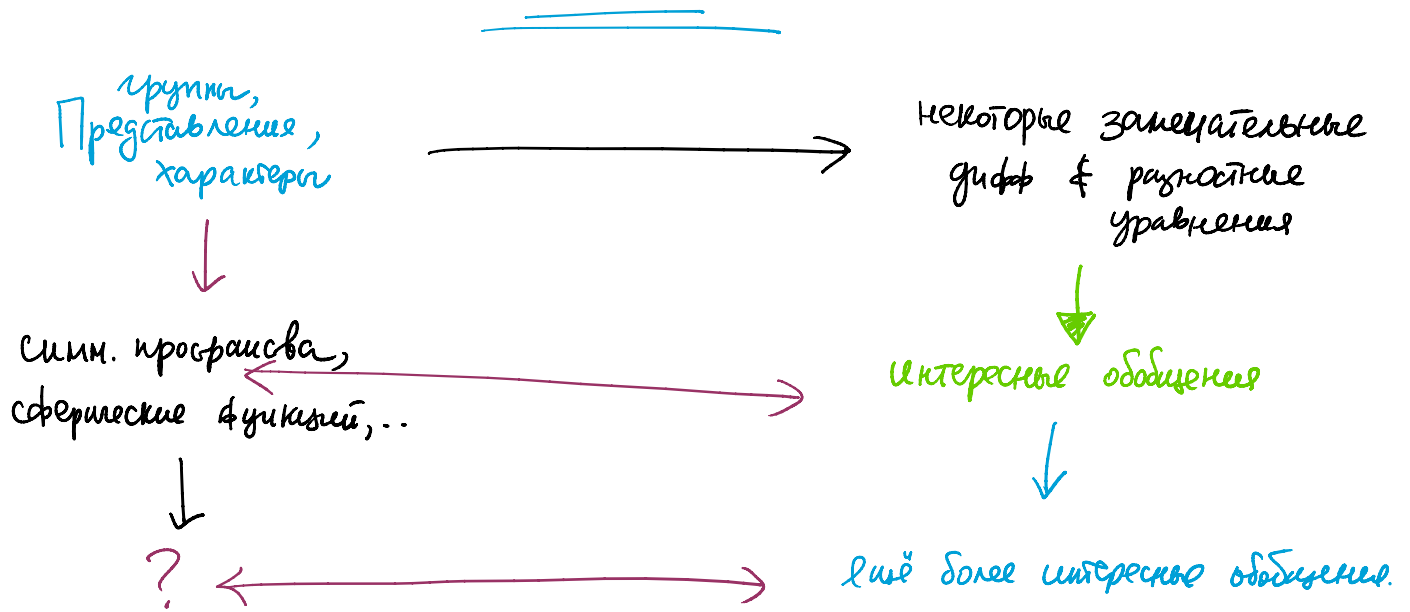 группы,
Представления,
характеры
некоторые замечательные
дифф & разностные
уравнения
симм. простраисва,
сферические функций,..
интересные обобщения
?
ещё более интересные обобщения.